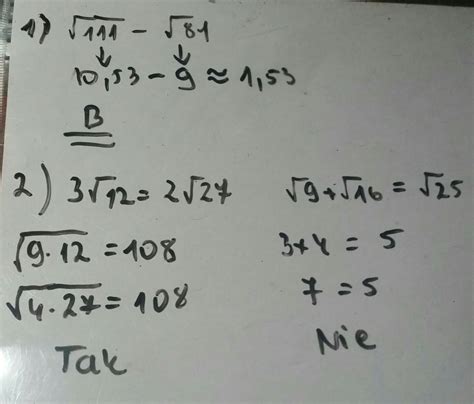 1) √111 - √81
↓ ↓
10,53 - 9 ≈ 1,53
B
2) 3√12 = 2√27
√9·12 = 108
√4·27 = 108
Tak
√9+√16 = √25
3+4 = 5
7 = 5
Nie